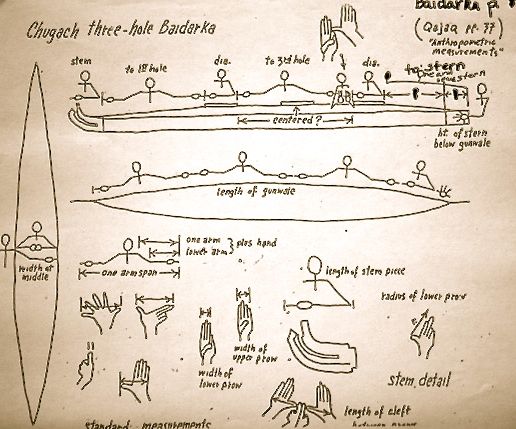 Baidarka p.
(Qajaq pp. 77)
"Anthropometric
measurements"
Chugach three-hole Baidarka
stem
to 1st hole
dia.
to 3rd hole
dia.
to stern
centered?
ht. of stern
below gunwale
length of gunwale
width at
middle
one arm
lower arm
plus hand
one arm span
length of stem piece
radius of lower prow
width of
upper prow
width of
lower prow
stem detail
length of cleft
between prows
standard measurements